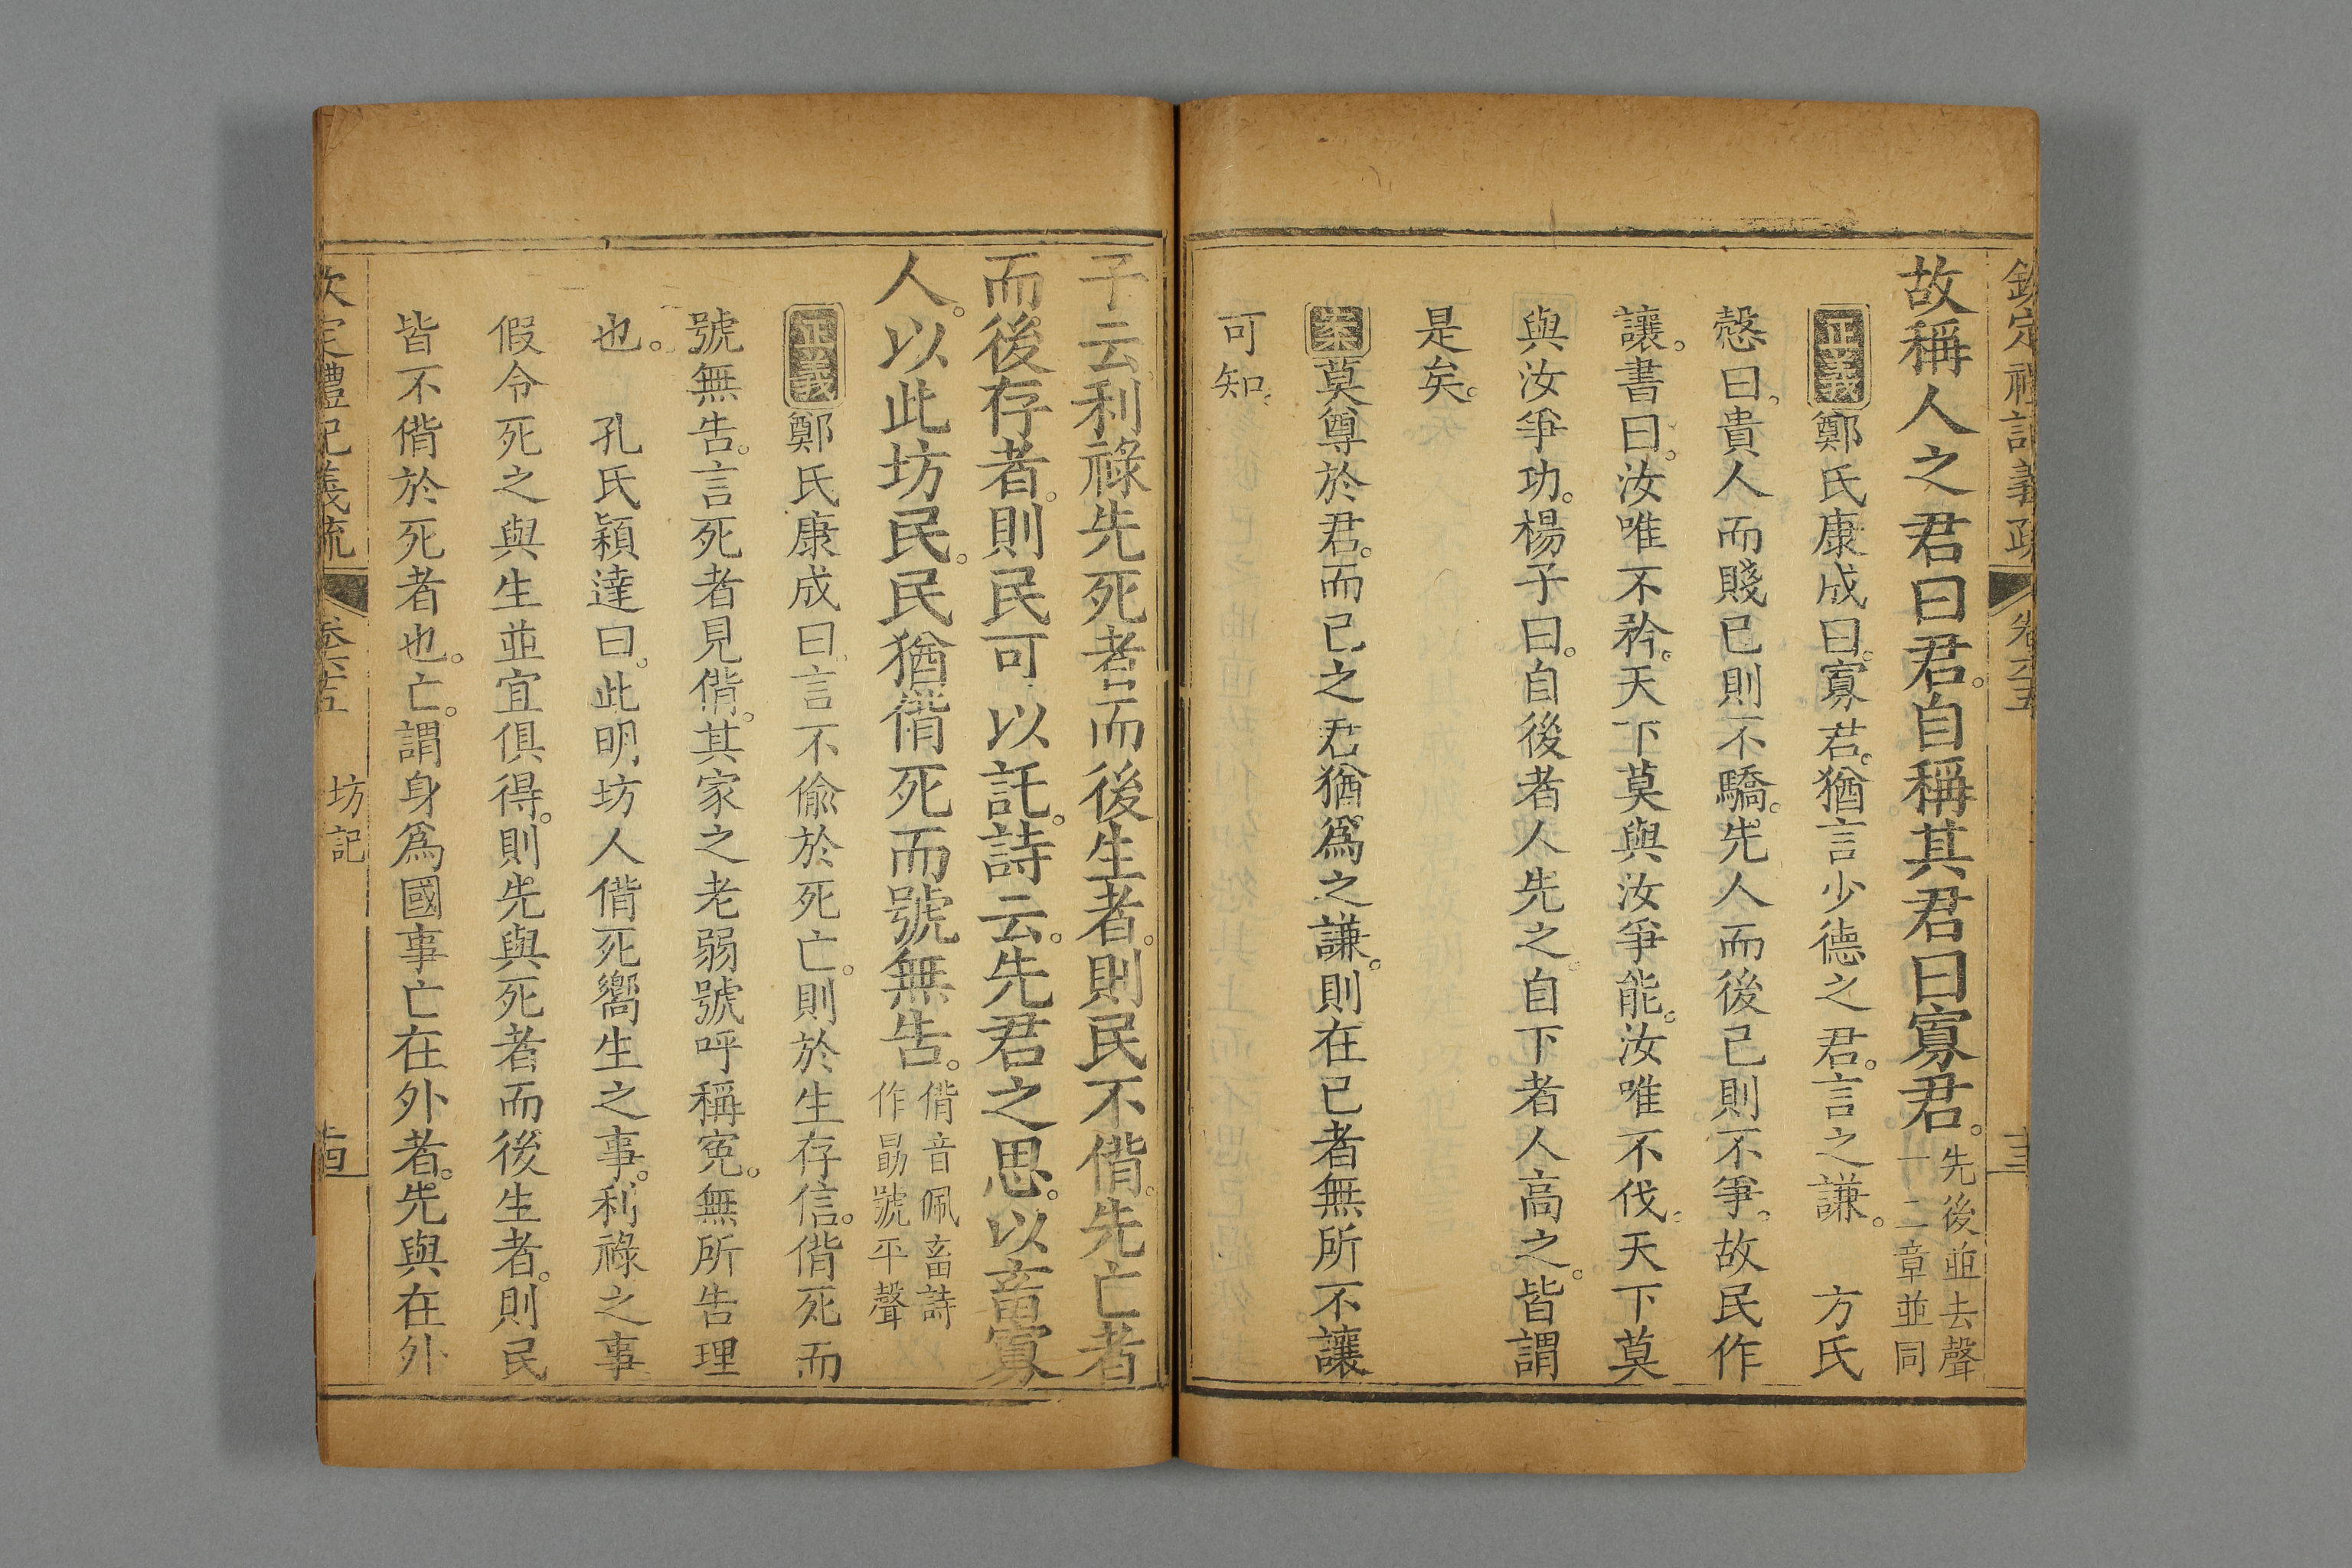 欽定禮記義疏 卷六十五 十三
故稱人之君曰君。自稱其君曰寡君。先後並去聲
一二章並同
正義鄭氏康成曰。寡君。猶言少德之君。言之謙。 方氏
愨曰。貴人而賤已則不驕。先人而後已則不爭。故民作
讓。書曰。汝唯不矜。天下莫與汝爭能。汝唯不伐。天下莫
與汝爭功。楊子曰。自後者人先之。自下者人高之。皆謂
是矣。
案莫尊於君。而已之君。猶爲之謙。則在已者無所不讓
可知。
子云利祿先死者而後生者。則民不偝。先亡者
而後存者。則民可以託。詩云。先君之思。以畜寡
人。以此坊民。民猶偝死而號無告。偝音佩畜詩
作勗號平聲
正義鄭氏康成曰。言不偸於死亡。則於生存信。偝死而
號無告。言死者見偝。其家之老弱號呼稱冤。無所告理
也。 孔氏穎達曰。此明坊人偝死嚮生之事。利祿之事
假令死之與生並宜俱得。則先與死者而後生者。則民
皆不偝於死者也。亡。謂身爲國事亡在外者。先與在外
欽定禮記義疏 卷六十五 坊記